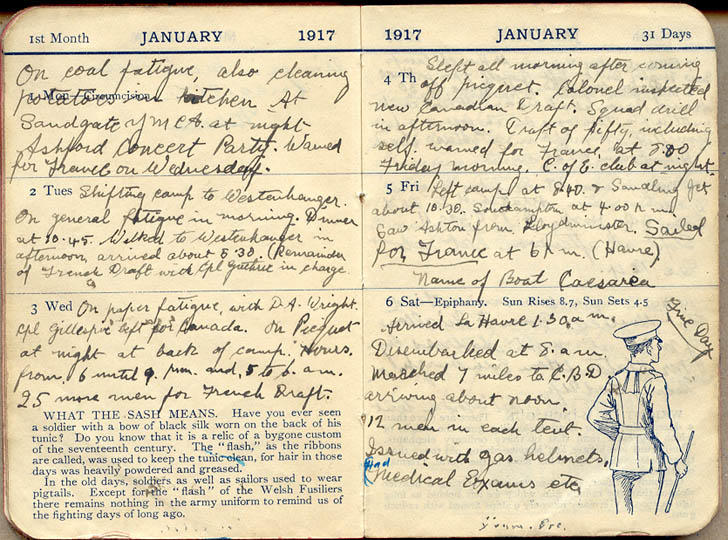 1st Month JANUARY 1917
On coal fatigue, also cleaning
1 Mon—Circumcision.
potatoes in kitchen At
Sandgate YMCA. at night
Ashford Concert Party. Warned
for Travel on Wednesday.
2 Tues Shifting camp to Westenhanger.
On general fatigue in morning. Dinner
at 10.45. Walked to Westenhanger in
afternoon arrived about 3.30 (Remainder
of French Draft with Cpl Guthrie in charge
3 Wed On paper fatigue, with D.A. Wright.
Cpl Gillespie left for Canada. On Picquet
at night at back of camp. Hours.
from 6 until 9 p.m. and, 5 to 6 a.m.
25 more men for French Draft.
WHAT THE SASH MEANS. Have you ever seen
a soldier with a bow of black silk worn on the back of his
tunic? Do you know that it is a relic of a bygone custom
of the seventeenth century. The "flash," as the ribbons
are called, was used to keep the tunic clean, for hair in those
days was heavily powdered and greased.
In the old days, soldiers as well as sailors used to wear
pigtails. Except for the "flash" of the Welsh Fusiliers
there remains nothing in the army uniform to remind us of
the fighting days of long ago.
1917 JANUARY 31 Days
4 Th Slept all morning after coming
off picquet. Colonel inspected
new Canadian Draft. Squad drill
in afternoon. Draft of fifty, including
self. warned for France, at 8.00
Friday morning. C. of E. club at night.
5 Fri Left camp at 8.40. & Sandling Jct
about 10.30. Southampton at 4.00 p.m.
Saw Ashton from Lloydminster. Sailed
for France at 6 p.m. (Havre)
Name of Boat Caesarea
6 Sat—Epiphany. Sun Rises 8.7, Sun Sets 4.5
Arrived La Havre 1.30 a.m.
Fine Day
Disembarked at 8. a.m.
Marched 7 miles to C.B.D
arriving about noon.
12 men in each tent.
Issued with gas helmets,
Had
Medical Exams etc